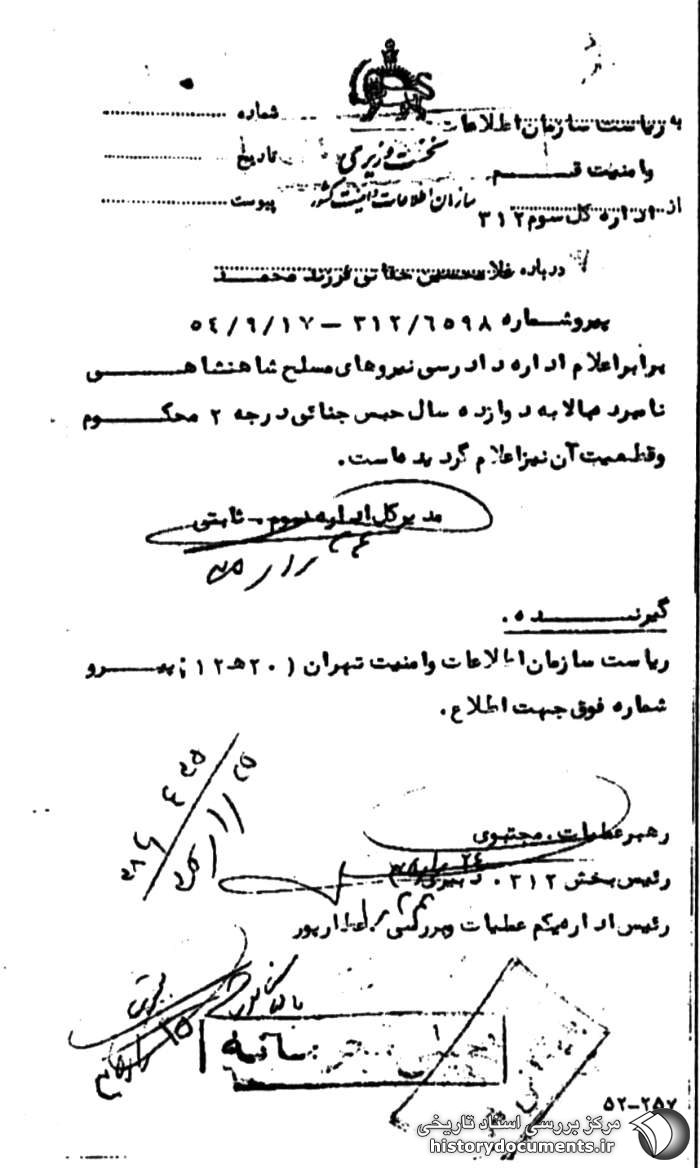 به ریاست سازمان اطلاعات
وامنیت قم
از اداره کل سوم ۳۱۲
نخست وزیری
سازمان اطلاعات و امنیت کشور
شماره
تاریخ
پیوست
درباره غلامحسین حقانی فرزند محمد
پیروشماره ۳۱۲/۶۵۹۸ – ۵۴/۹/۱۷
برابراعلام اداره دادرسی نیروهای مسلح شاهنشاهی
نامبرده بالا به دوازده سال حبس جنائی درجه ۲ محکوم
وقطعیت آن نیزاعلام گردیده است.
مدیرکل اداره سوم. ثابتی
گیرنده.
ریاست سازمان اطلاعات وامنیت تهران (۲۰هـ۱۲) پیرو
شماره فوق جهت اطلاع.
رهبرعملیات. مجتبوی
رئیس بخش ۳۱۲.
رئیس اداره یکم عملیات وبررسی. عطارپور
بایگانی
۵۲-۲۵۷
مرکز بررسی اسناد تاریخی
historydocuments.ir